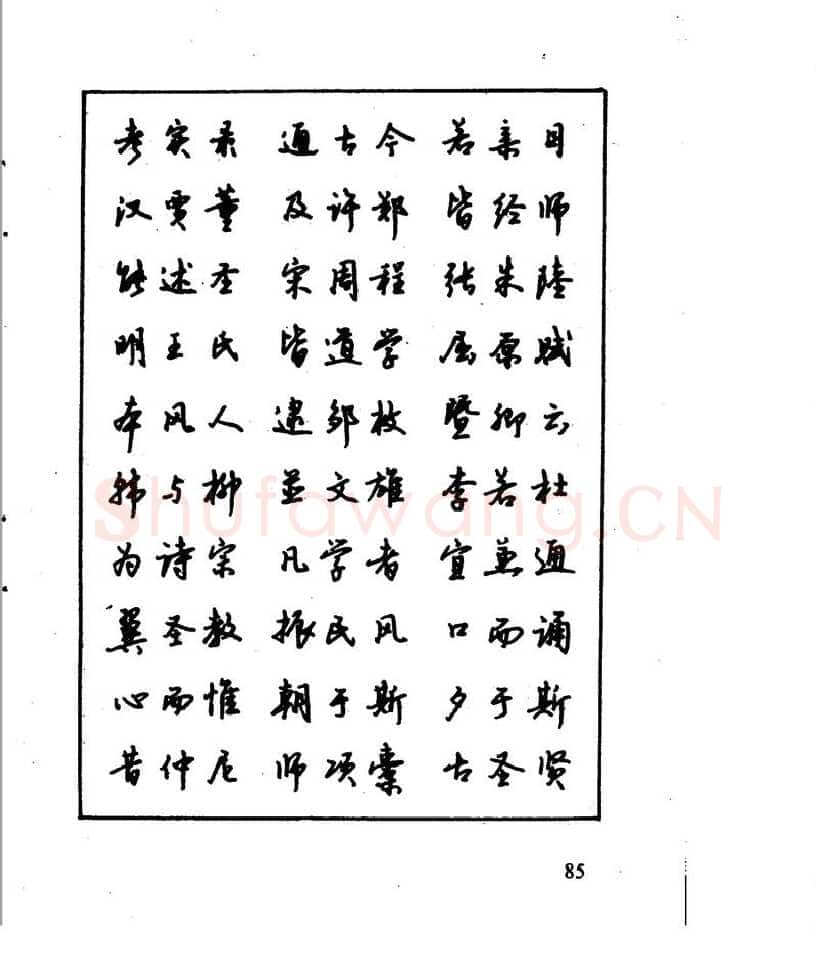 考实录 通古今 若亲目
汉贾董 及许郑 皆经师
能述圣 宋周程 张朱陆
明王氏 皆道学 屈原赋
本风人 逮邹枚 暨卿云
韩与柳 并文雄 李若杜
为诗宗 凡学者 宜兼通
翼圣教 振民风 口而诵
心而惟 朝于斯 夕于斯
昔仲尼 师项橐 古圣贤
85
Shufawang.CN